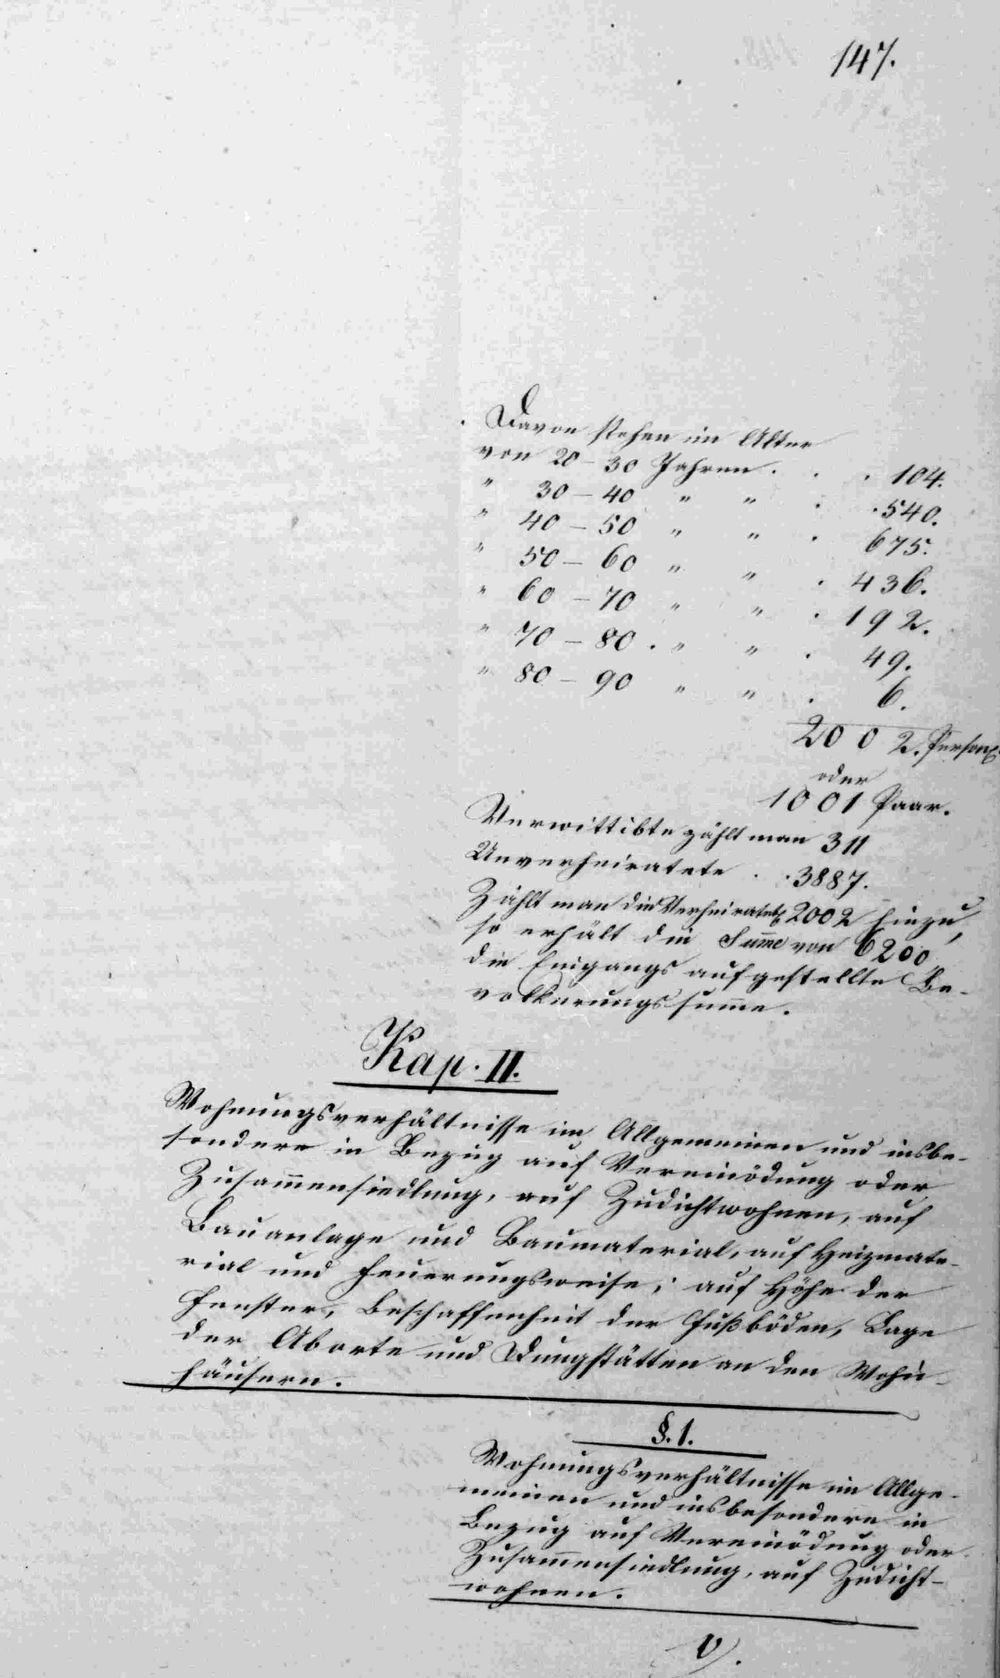 147.
Davon stehen im Alter
von 20 – 30 Jahren . . . 104.
" 30 – 40 " " . . 540.
" 40 – 50 " " . 675.
" 50 – 60 " " . 436.
" 60 – 70 " " . 192.
" 70 – 80 . " " . 49.
" 80 – 90 " " . 6.
2002. Personen
oder
1001 Paar.
Verwittibte zählt man 311
Unverheiratete . . 3887.
Zählt man die Verheirateten 2002 hinzu,
so erhält die Sum̅e von 6200
die Eingangs aufgestellte Be-
völkerungssum̅e.
Kap. II.
Wohnungsverhältnisse im Allgemeinen und insbe-
sondere in Bezug auf Vereinödung oder
Zusam̅ensiedlung, auf Zudichtwohnen, auf
Bauanlage und Baumaterial, auf Heizmate-
rial und Feuerungsweise; auf Höhe der
Fenster, Beschaffenheit der Fußböden, Lage
der Aborte und Dungstätten an den Wohn-
häusern.
§. 1.
Wohnungsverhältnisse im Allge-
meinen und insbesondere in
Bezug auf Vereinödung oder
Zusam̅ensiedlung, auf Zudicht-
wohnen.